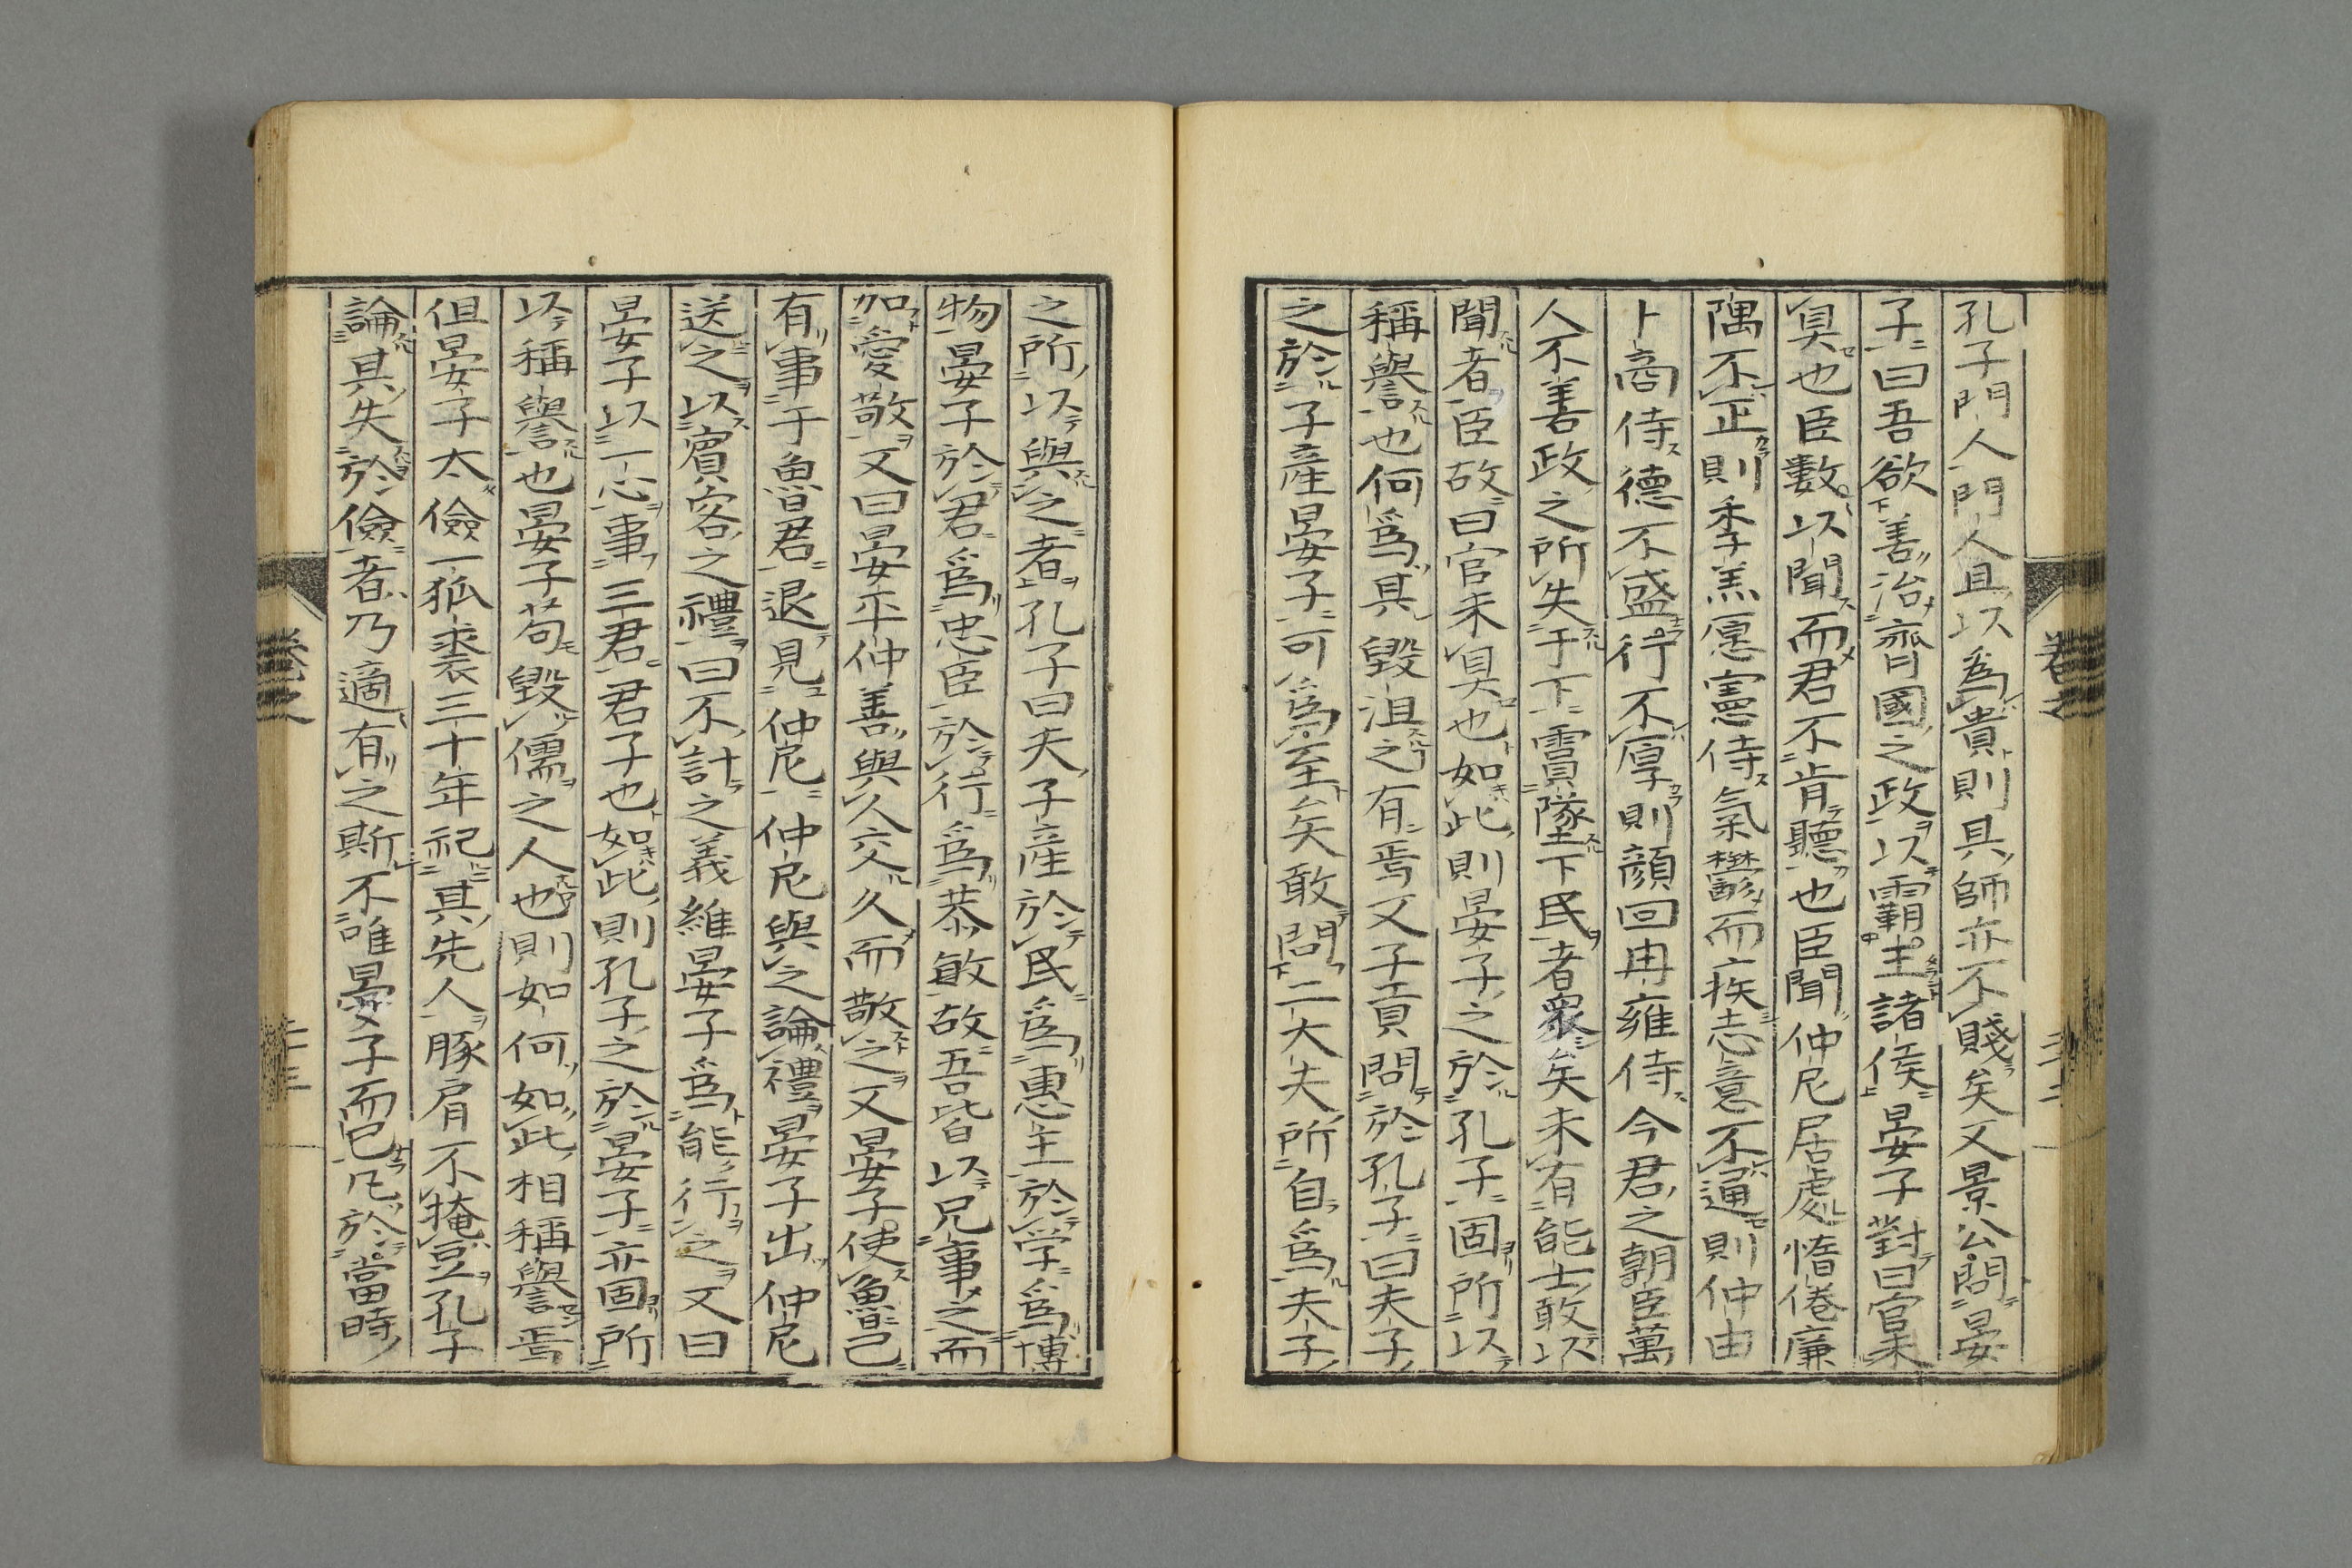 孔子門人門人且以為貴則其師亦不賤矣又景公問晏
子曰吾欲善治齊國之政以霸王諸侯晏子對曰官未
具也臣數以聞而君不肯聽也臣聞仲尼居處惰倦廉
隅不正則季羔原憲侍氣鬱而疾志意不通則仲由
卜商侍德不盛行不厚則顏回冉雍侍今君之朝臣萬
人不善政之所失于下霣墜下民者衆矣未有能士敢以
聞者臣故曰官未具也如此則晏子之於孔子固所以
稱譽也何爲其毀沮之有焉又子貢問於孔子曰夫子
之於子產晏子可爲至矣敢問二大夫所自爲夫子
之所以與之者孔子曰夫子產於民爲惠主於学爲博
物晏子於君爲忠臣於行爲恭敏故吾皆以兄事之而
加愛敬又曰晏平仲善與人交久而敬之又晏子使魯已
有事于魯君退見仲尼仲尼與之論禮晏子出仲尼
送之以賓客之禮曰不計之義維晏子爲能行之又曰
晏子以一心事三君君子也如此則孔子之於晏子亦固所
以稱譽也晏子苟毀儒之人也則如何如此相稱譽焉
但晏子太儉一狐裘三十年祀其先人豚肩不掩豆孔子
論其失於儉者乃適有之斯不唯晏子而已凡於當時
卷之
卷之